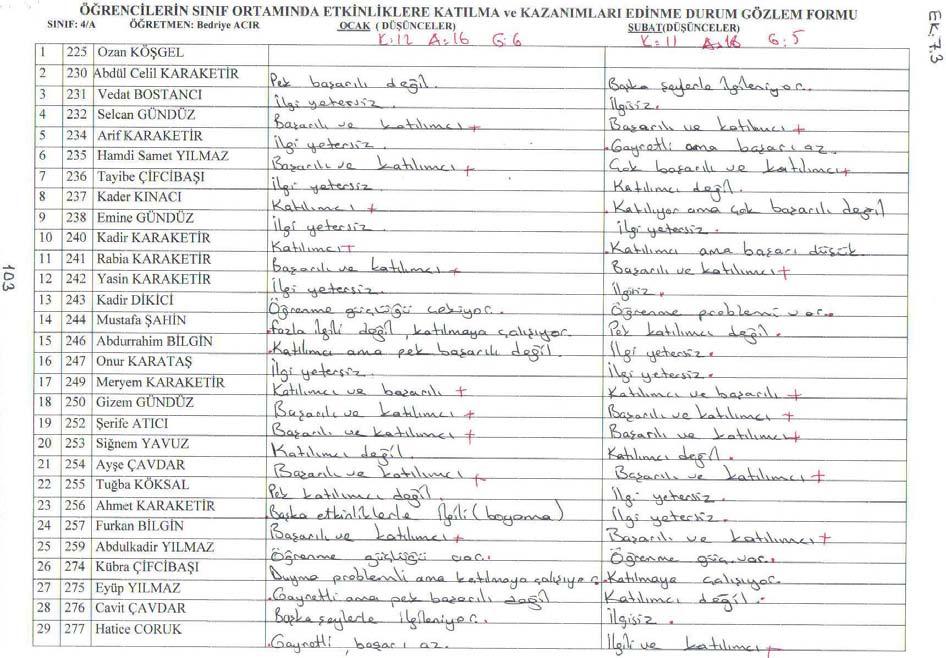 ÖĞRENCİLERİN SINIF ORTAMINDA ETKİNLİKLERE KATILMA ve KAZANIMLARI EDİNME DURUM GÖZLEM FORMU
SINIF: 4/A ÖĞRETMEN: Bedriye ACIR OCAK (DÜŞÜNCELER) ŞUBAT(DÜŞÜNCELER)
K:12 A:16 G:6 K:11 A:18 G:5
EK.7.3
1 225 Ozan KÖŞGEL
2 230 Abdül Celil KARAKETİR Pek başarılı değil. Başka şeylerle ilgileniyor.
3 231 Vedat BOSTANCI İlgi yetersiz. İlgisiz.
4 232 Selcan GÜNDÜZ Başarılı ve katılımcı + Başarılı ve katılımcı +
5 234 Arif KARAKETİR İlgi yetersiz. Gayretli ama başarı az.
6 235 Hamdi Samet YILMAZ Başarılı ve katılımcı + Çok başarılı ve katılımcı +
7 236 Tayibe ÇİFCİBAŞI İlgi yetersiz. Katılımcı değil.
8 237 Kader KINACI Katılımcı + Katılıyor ama çok başarılı değil
9 238 Emine GÜNDÜZ İlgi yetersiz. İlgi yetersiz.
10 240 Kadir KARAKETİR Katılımcı + Katılımcı ama başarı düşük.
11 241 Rabia KARAKETİR Başarılı ve katılımcı + Başarılı ve katılımcı +
12 242 Yasin KARAKETİR İlgi yetersiz. İlgisiz.
13 243 Kadir DİKİCİ Öğrenme güçlüğü çekiyor. Öğrenme problemi var.
14 244 Mustafa ŞAHİN fazla ilgili değil, katılmaya çalışıyor. Pek katılımcı değil.
15 246 Abdurrahim BİLGİN Katılımcı ama pek başarılı değil. İlgi yetersiz.
16 247 Onur KARATAŞ İlgi yetersiz. İlgi yetersiz.
17 249 Meryem KARAKETİR Katılımcı ve başarılı + Katılımcı ve başarılı +
18 250 Gizem GÜNDÜZ Başarılı ve katılımcı + Başarılı ve katılımcı +
19 252 Şerife ATICI Başarılı ve katılımcı + Başarılı ve katılımcı +
20 253 Siğnem YAVUZ Katılımcı değil. Katılımcı değil.
21 254 Ayşe ÇAVDAR Başarılı ve katılımcı + Başarılı ve katılımcı +
22 255 Tuğba KÖKSAL Pek katılımcı değil. İlgi yetersiz.
23 256 Ahmet KARAKETİR Başka etkinliklerle ilgili (boyama) İlgi yetersiz.
24 257 Furkan BİLGİN Başarılı ve katılımcı + Başarılı ve katılımcı +
25 259 Abdulkadir YILMAZ Öğrenme güçlüğü var. Öğrenme güç. var.
26 274 Kübra ÇİFCİBAŞI Duyma problemli ama katılmaya çalışıyor. Katılmaya çalışıyor.
27 275 Eyüp YILMAZ Gayretli ama pek başarılı değil Katılımcı değil.
28 276 Cavit ÇAVDAR Başka şeylerle ilgileniyor. İlgisiz.
29 277 Hatice CORUK Gayretli, başarı az. İlgili ve katılımcı +
103